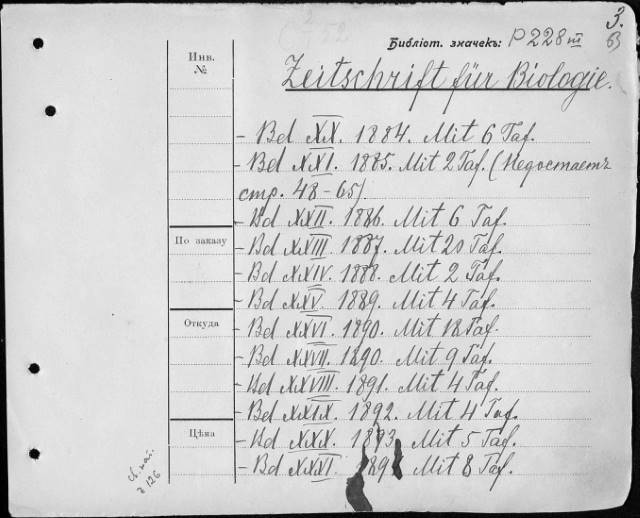 3.
63
Библіот. значекъ: P 228 III
Инв.
№
Zeitschrift für Biologie.
- Bd XX. 1884. Mit 6 Taf.
- Bd XXI. 1885. Mit 2 Taf. (Недостаетъ
стр. 48-65)
- Bd XXII. 1886. Mit 6 Taf.
По заказу
- Bd XXIII. 1887. Mit 20 Taf.
- Bd XXIV. 1888. Mit 2 Taf.
- Bd XXV. 1889. Mit 4 Taf.
Откуда
- Bd XXVI. 1890. Mit 12 Taf.
- Bd XXVII. 1890. Mit 9 Taf.
- Bd XXVIII. 1891. Mit 4 Taf.
- Bd XXIX. 1892. Mit 4 Taf.
Цѣна
- Bd XXX. 1893. Mit 5 Taf.
- Bd XXXI. 1894 Mit 8 Taf.
126